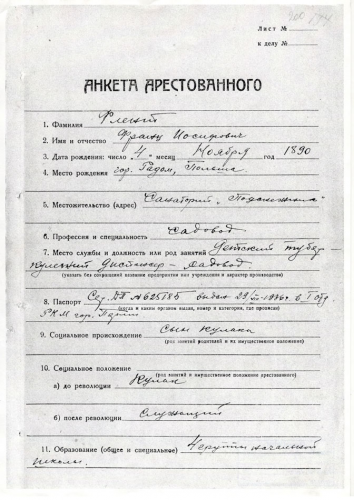 Лист №
к делу №
АНКЕТА АРЕСТОВАННОГО
1. Фамилия
2. Имя и отчество Франц Иосифович
3. Дата рождения: число 4 месяц Ноября год 1890
4. Место рождения гор. Радом, Польша
5. Местожительство (адрес) Санаторий
6. Профессия и специальность Садовод
7. Место службы и должность или род занятий Детский тубер-
кулезный диспансер - садовод
(указать без сокращений название предприятия или учреждения и характер производства)
8. Паспорт
РКМ гор.
(когда и каким органом выдан, номер и категория, где прописан)
9. Социальное происхождение Сын кулака
(род занятий родителей и их имущественное положение)
10. Социальное положение
(род занятий и имущественное положение арестованного)
а) до революции Кулак
б) после революции Служащий
11. Образование (общее и специальное) начальной
школы.